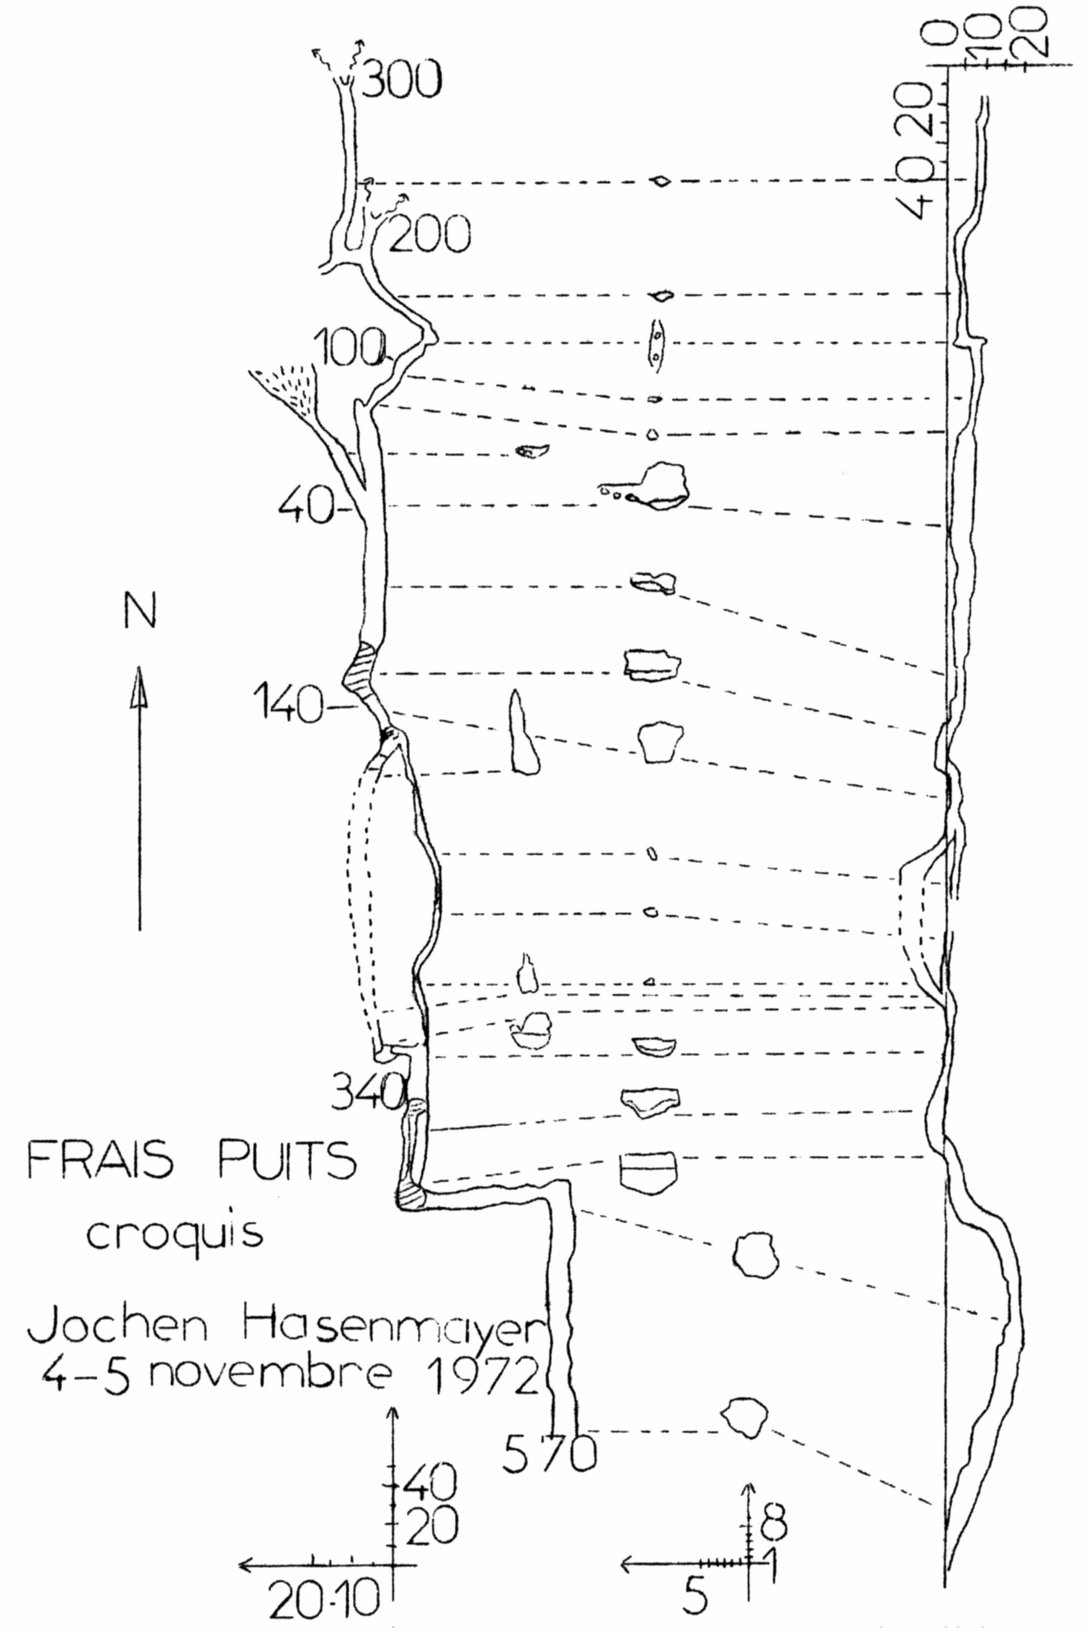 0 10 20
300
20
40
200
100
40
N
140
340
FRAIS PUITS
croquis
Jochen Hasenmayer
4-5 novembre 1972
570
40
20
20·10
8
1
5